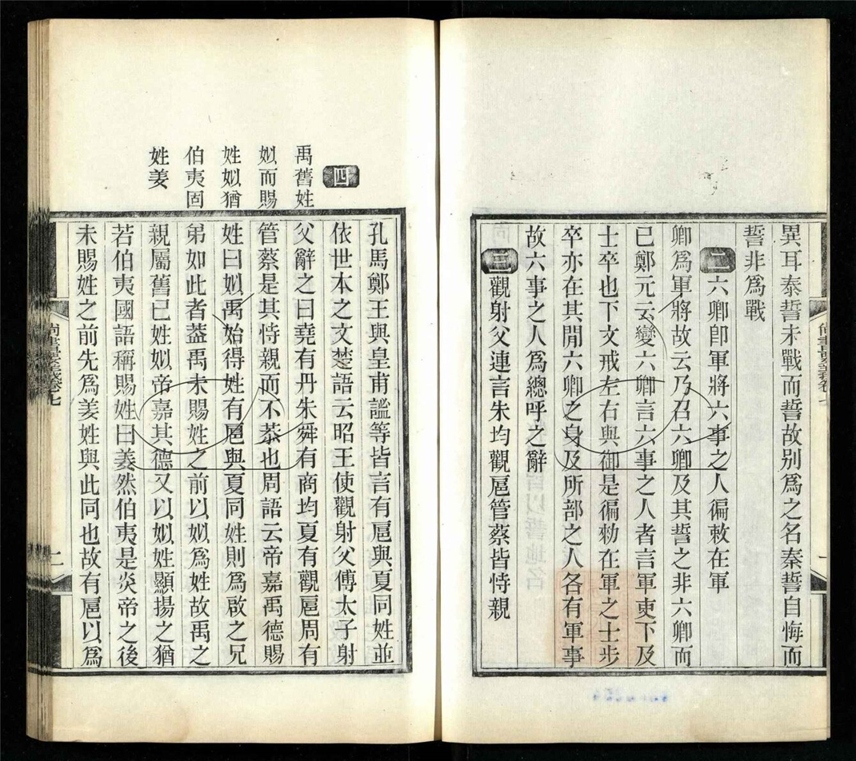 異耳泰誓未戰而誓故别為之名秦誓自悔而
誓非為戰
二六卿卽軍將六事之人徧敕在軍
卿為軍將故云乃召六卿及其誓之非六卿而
已鄭元云變六卿言六事之人者言軍吏下及
士卒也下文戒左右與御是徧勑在軍之士步
卒亦在其閒六卿之身及所部之人各有軍事
故六事之人為總呼之辭
三觀射父連言朱均觀扈管蔡皆恃親
四
禹舊姓
姒而賜
姓姒猶
伯夷固
姓姜
孔馬鄭王與皇甫謐等皆言有扈與夏同姓並
依世本之文楚語云昭王使觀射父傅太子射
父辭之曰堯有丹朱舜有商均夏有觀扈周有
管蔡是其恃親而不恭也周語云帝嘉禹德賜
姓曰姒禹始得姓有扈與夏同姓則為啟之兄
弟如此者蓋禹未賜姓之前以姒為姓故禹之
親屬舊已姓姒帝嘉其德又以姒姓顯揚之猶
若伯夷國語稱賜姓曰姜然伯夷是炎帝之後
未賜姓之前先為姜姓與此同也故有扈以為
二